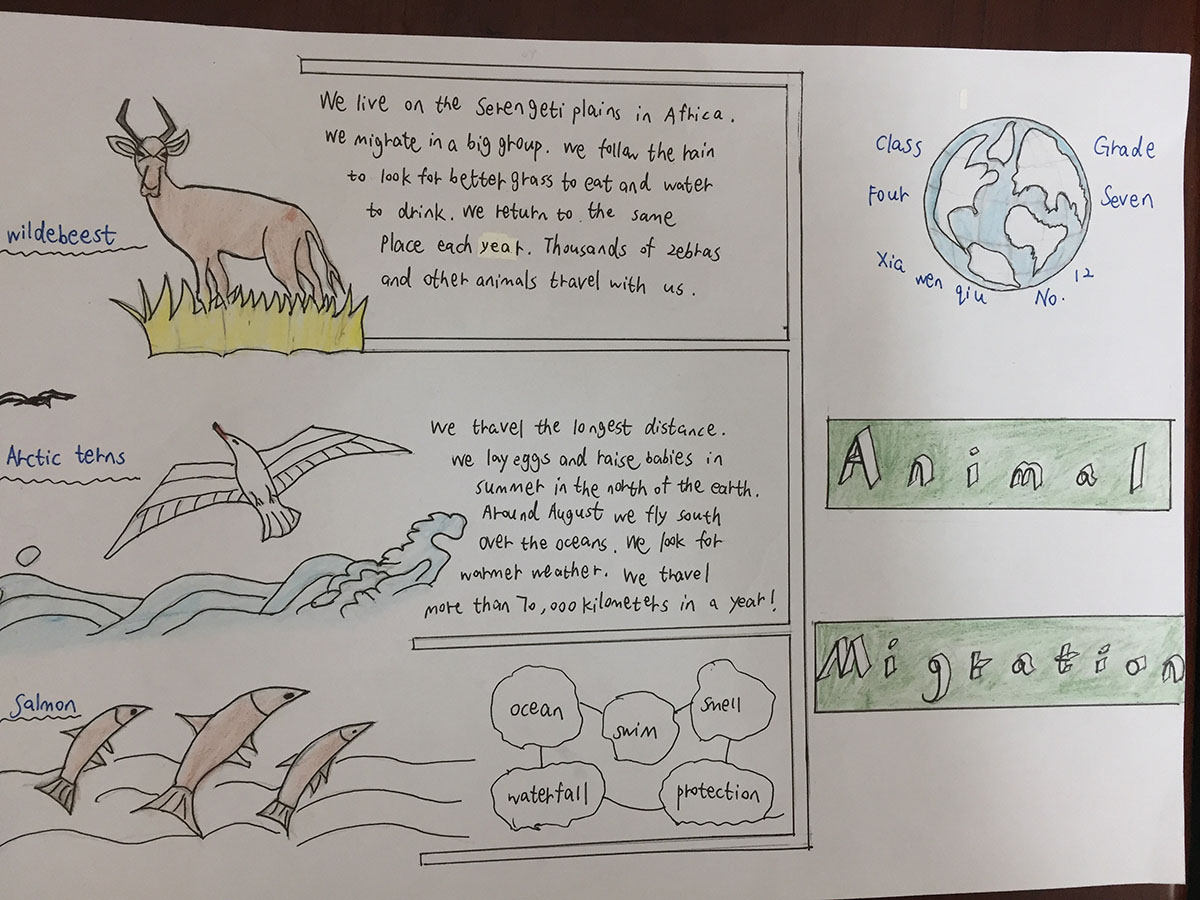 wildebeest
We live on the Serengeti plains in Africa.
We migrate in a big group. We follow the rain
to look for better grass to eat and water
to drink. We return to the same
Place each year. Thousands of zebras
and other animals travel with us.
Arctic terns
We travel the longest distance.
We lay eggs and raise babies in
summer in the north of the earth.
Around August we fly south
over the oceans. We look for
warmer weather. We travel
more than 70,000 kilometers in a year!
Salmon
ocean
swim
smell
waterfall
protection
Class
Four
Grade
Seven
Xia wen qiu
No. 12
Animal
Migration